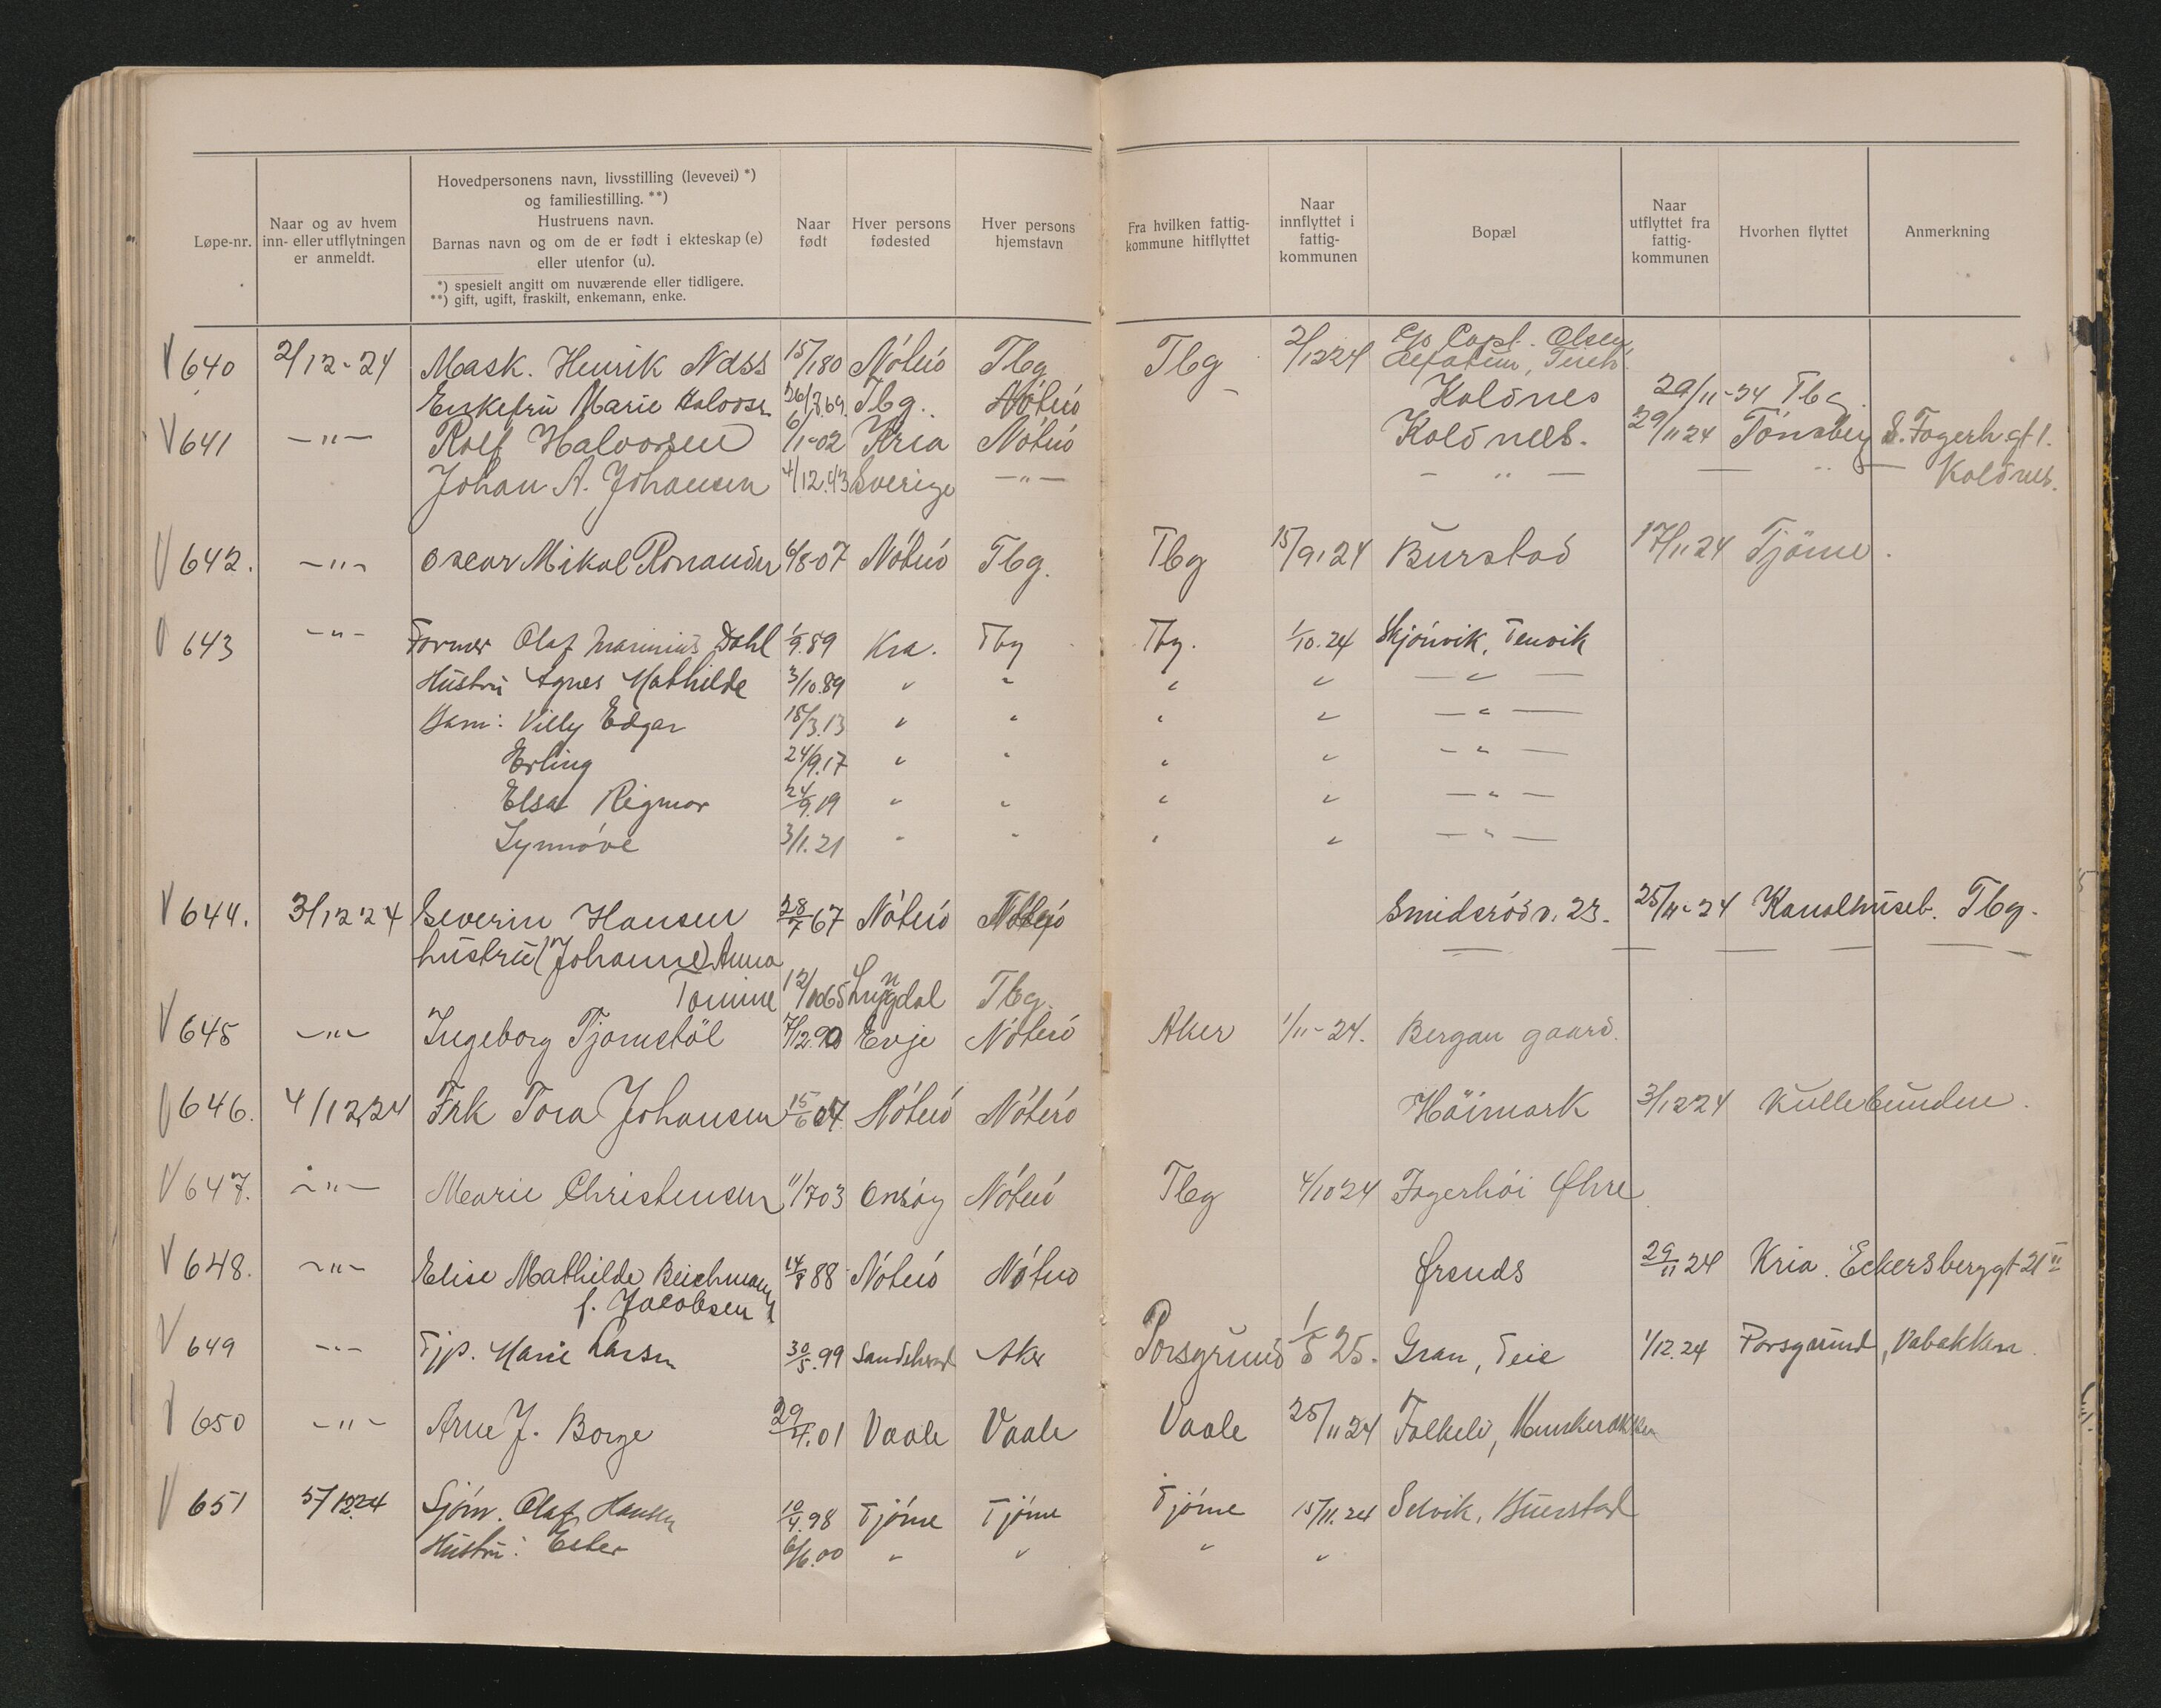 Løpe-nr.
Naar og av hvem
inn- eller utflytningen
er anmeldt.
Hovedpersonens navn, livsstilling (levevei) *)
og familiestilling. **)
Hustruens navn.
Barnas navn og om de er født i ekteskap (e)
eller utenfor (u).
*) spesielt angitt om nuværende eller tidligere.
**) gift, ugift, fraskilt, enkemann, enke.
Naar
født
Hver persons
fødested
Hver persons
hjemstavn
Fra hvilken fattig-
kommune hitflyttet
Naar
innflyttet i
fattig-
kommunen
Bopæl
Naar
utflyttet fra
fattig-
kommunen
Hvorhen flyttet
Anmerkning
640 2/12-24 Mask. Henrik Næss 15/1 80 Nóteró Tbg Tbg 2/12 24 Capt. Olsen
Enkefru Marie Halvorsen 69 Tbg. Nóteró Kaldnes 29/11-24 Tbg
641 -"- Rolf Halvorsen 6/11-02 Kria Nóteró Kaldnes. 29/11 24 Tónsberg S. Fagerh.gt 1.
Johan A. Johansen 4/12.43 Sverige -"- - " - - " - Kaldnes.
642. -"- Oscar Mikal 6/8-07 Nóteró Tbg. Tbg 15/9.24 Burstad 17/11 24 Tjöme.
643 -"- Former Olaf Marinius Dahl 1/9.89 Kra. Tbg Tbg. 1/10.24 Skjónvik, Tenvik
Hustru Agnes Mathilde 3/10.89 " " " " - " -
Barn: Villy Edgar 18/3.13 " " " " - " -
Erling 24/9.17 " " " " - " -
Elsa Rigmor 24/9.19 " " " " - " -
Synnóve 3/1.21 " " " " - " -
644. 3/12 24 Severin Hansen 28/7 67 Nóteró Nóteró Smidsród v. 23. 25/11-24 Kanalhuseb. Tbg.
hustru (Johanne) Anna
Tomine 12/10 65 Lyngdal Tbg.
645 -"- Ingeborg Tjomstöl 7/12.90 Evje Nóteró Aker 1/11-24. Bergan gaard.
646. 4/12 24 Frk Tora Johansen 15/6 07 Nóteró Nóteró Höimark 3/12 24 Kullebunden.
647. -"- Marie Christensen 11/7 03 Onsöy Nóteró Tbg 4/10 24 Fagerhói Øhre
648. -"- Elise Mathilde Beichmann 14/8 88 Nóteró Nóteró Ørsnds 29/11 24 Kria. Eckersbergt 21 II
f. Jacobsen
649 -"- Tjp. Marie Larsen 30/5.99 Aker Porsgrund 1/5 25. Gran, Teie 1/12.24 Porsgrund, Vabakken.
650 -"- Arne J. Borge 29/4.01 Vaale Vaale Vaale 25/11 24 Folkeli, Munkerekken
651 5/12 24 Sjóm. Olaf Hansen 10/4.98 Tjóme Tjóme Tjóme 15/11.24 Selvik, Buerstad
Hustru: Ester 6/6.00 " " " "